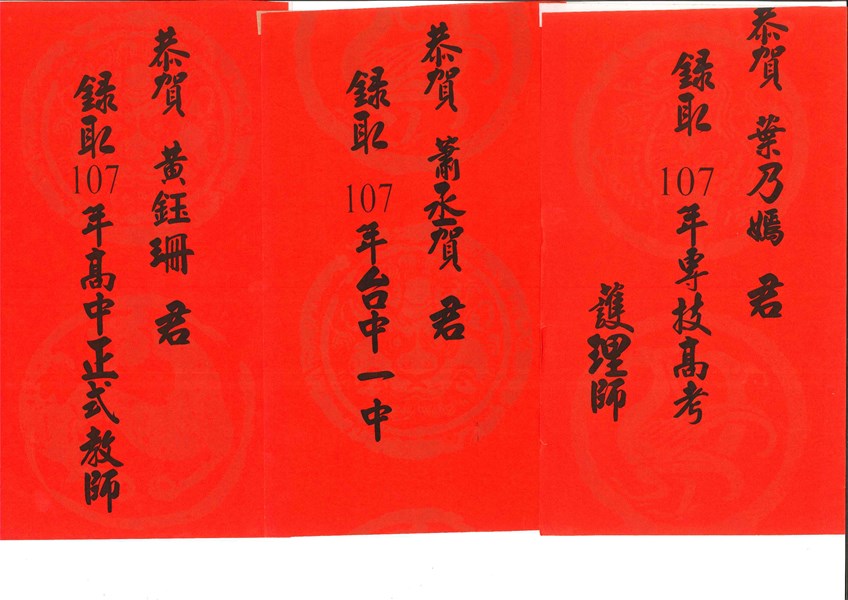 恭賀 葉乃嫣 君
錄取107年專技高考
護理師
恭賀 蕭丞賀 君
錄取107年台中一中
恭賀 黃鈺珊 君
錄取107年高中正式教師